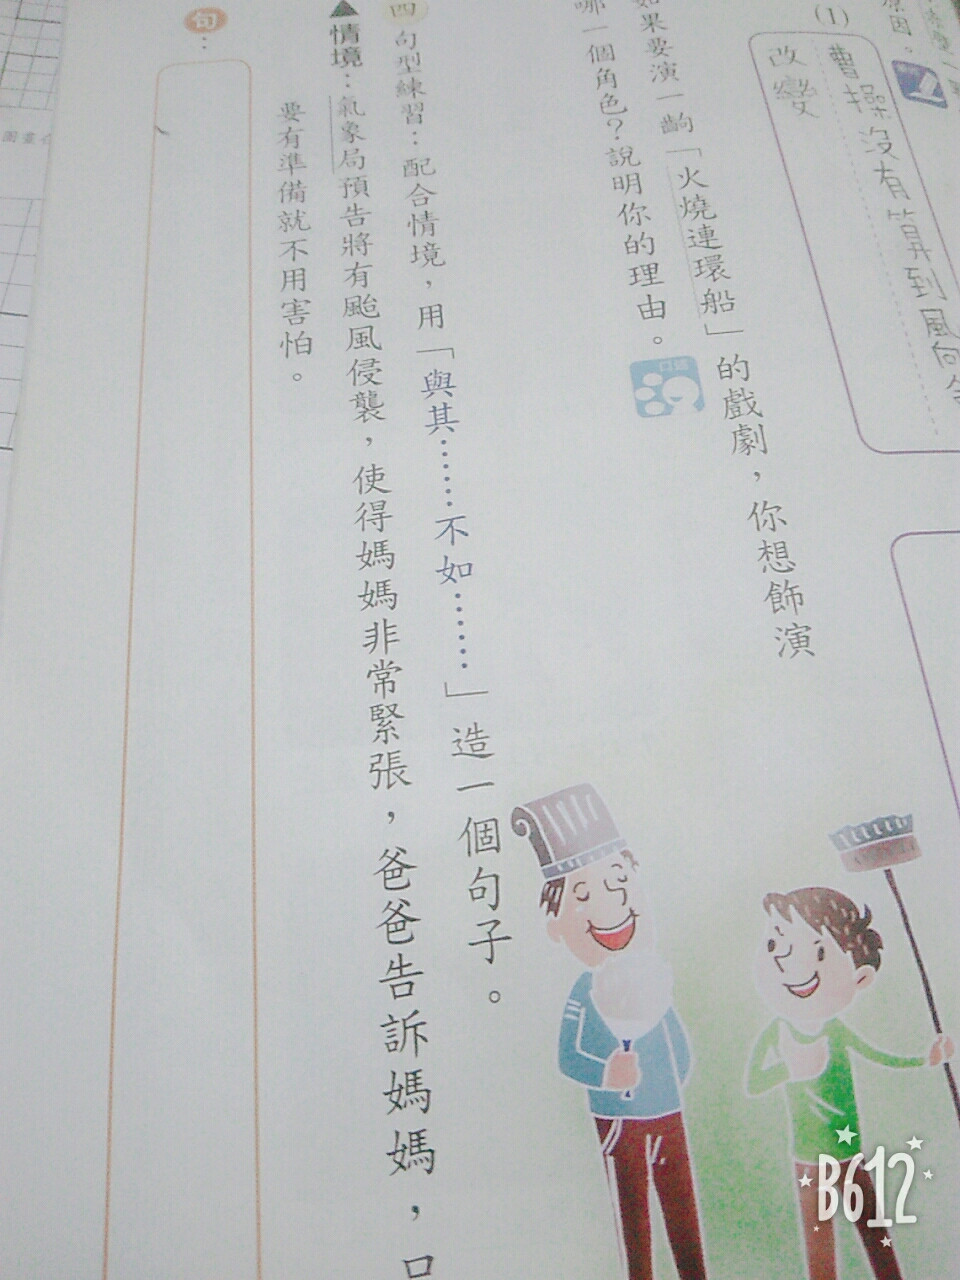 原因。
(1)
曹操沒有算到風向會
改變
如果要演一齣「火燒連環船」的戲劇，你想飾演
哪一個角色？說明你的理由。
口語
四 句型練習：配合情境，用「與其……不如……」造一個句子。
▲情境：氣象局預告將有颱風侵襲，使得媽媽非常緊張，爸爸告訴媽媽，只
要有準備就不用害怕。
句：
B612